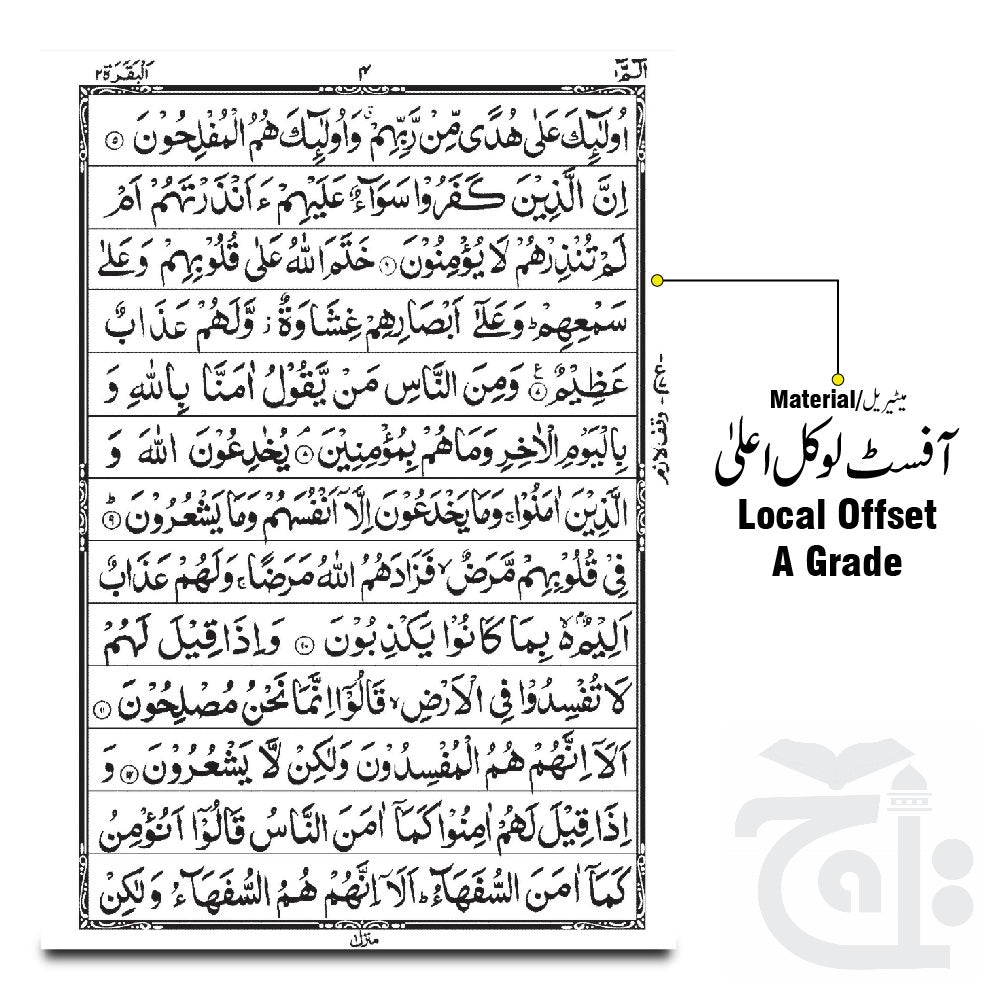 الٓمّٓ ١
٤
اَلْبَقَرَة ٢
اُولٰٓئِكَ عَلٰى هُدًى مِّنْ رَّبِّهِمْ ۙ وَاُولٰٓئِكَ هُمُ الْمُفْلِحُوْنَ ۝٥
اِنَّ الَّذِيْنَ كَفَرُوْا سَوَآءٌ عَلَيْهِمْ ءَاَنْذَرْتَهُمْ اَمْ
لَمْ تُنْذِرْهُمْ لَا يُؤْمِنُوْنَ ۝٦ خَتَمَ اللّٰهُ عَلٰى قُلُوْبِهِمْ وَعَلٰى
سَمْعِهِمْ ؕ وَعَلٰٓى اَبْصَارِهِمْ غِشَاوَةٌ ؗ وَّلَهُمْ عَذَابٌ
عَظِيْمٌ ۝٧ وَمِنَ النَّاسِ مَنْ يَّقُوْلُ اٰمَنَّا بِاللّٰهِ وَ
بِالْيَوْمِ الْاٰخِرِ وَمَا هُمْ بِمُؤْمِنِيْنَ ۝٨ يُخٰدِعُوْنَ اللّٰهَ وَ
الَّذِيْنَ اٰمَنُوْا ۚ وَمَا يَخْدَعُوْنَ اِلَّآ اَنْفُسَهُمْ وَمَا يَشْعُرُوْنَ ؕ۝٩
فِيْ قُلُوْبِهِمْ مَّرَضٌ ۙ فَزَادَهُمُ اللّٰهُ مَرَضًا ۚ وَلَهُمْ عَذَابٌ
اَلِيْمٌ ۢ ۙ بِمَا كَانُوْا يَكْذِبُوْنَ ۝١٠ وَاِذَا قِيْلَ لَهُمْ
لَا تُفْسِدُوْا فِي الْاَرْضِ ۙ قَالُوْٓا اِنَّمَا نَحْنُ مُصْلِحُوْنَ ۝١١
اَلَآ اِنَّهُمْ هُمُ الْمُفْسِدُوْنَ وَلٰكِنْ لَّا يَشْعُرُوْنَ ۝١٢ وَ
اِذَا قِيْلَ لَهُمْ اٰمِنُوْا كَمَآ اٰمَنَ النَّاسُ قَالُوْٓا اَنُؤْمِنُ
كَمَآ اٰمَنَ السُّفَهَآءُ ؕ اَلَآ اِنَّهُمْ هُمُ السُّفَهَآءُ وَلٰكِنْ
منزل ١
وقف لازم
Material/میٹیریل
آفسٹ لوکل اعلیٰ
Local Offset
A Grade